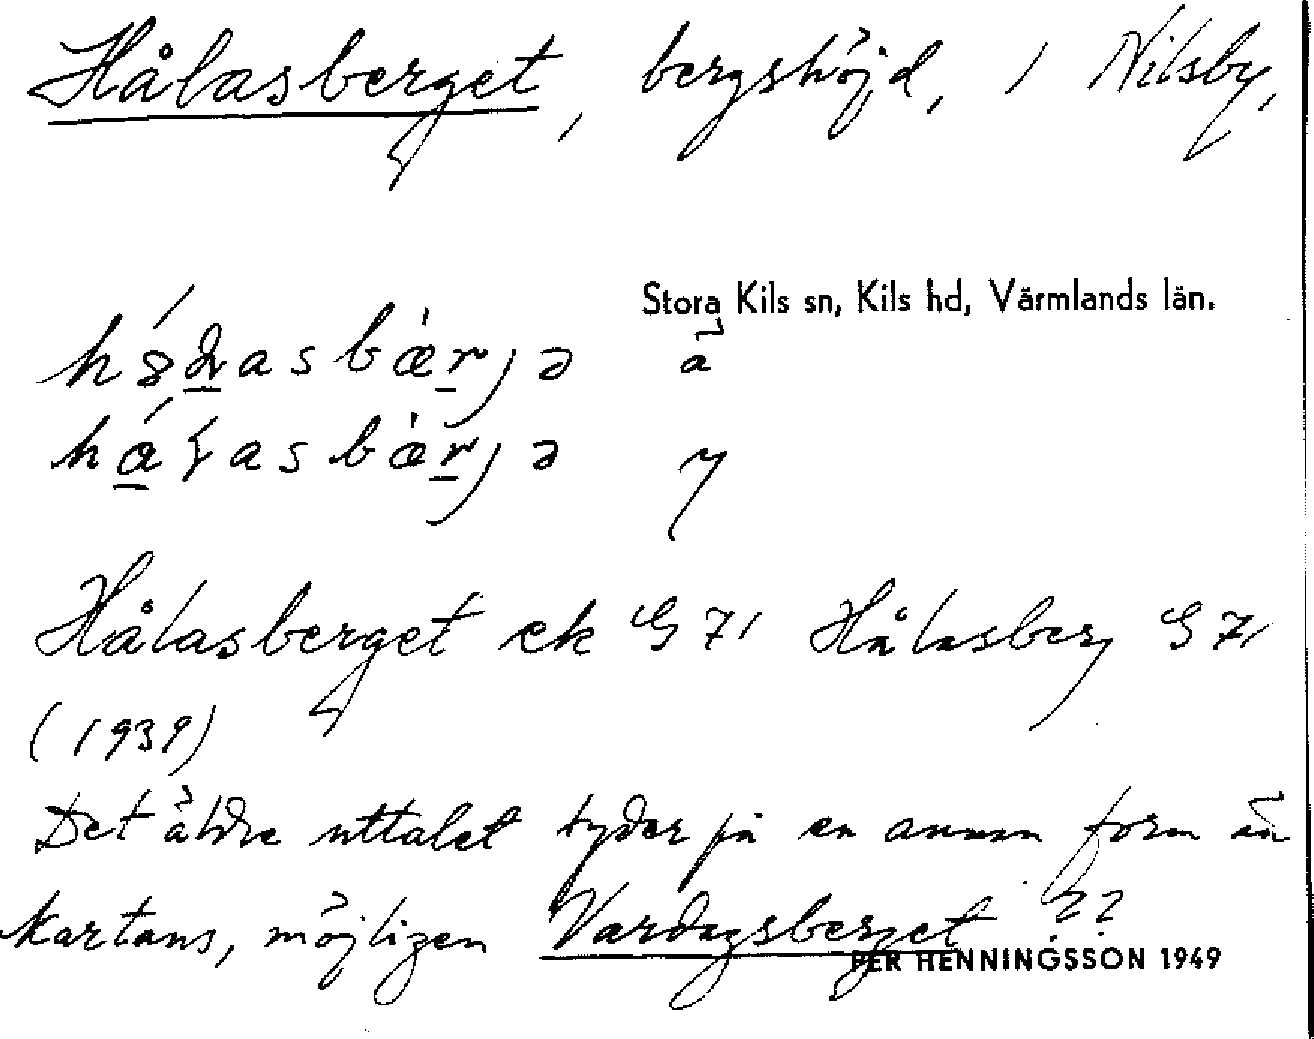 Hålasberget, bergshöjd, i Nilsby,
Stora Kils sn, Kils hd, Värmlands län.
ä
y
Hålasberget ek G 71 Hålasberg G 71
(1939)
Det äldre uttalet tyder på en annan form än
kartans, möjligen Vardagsberget ??
PER HENNINGSSON 1949